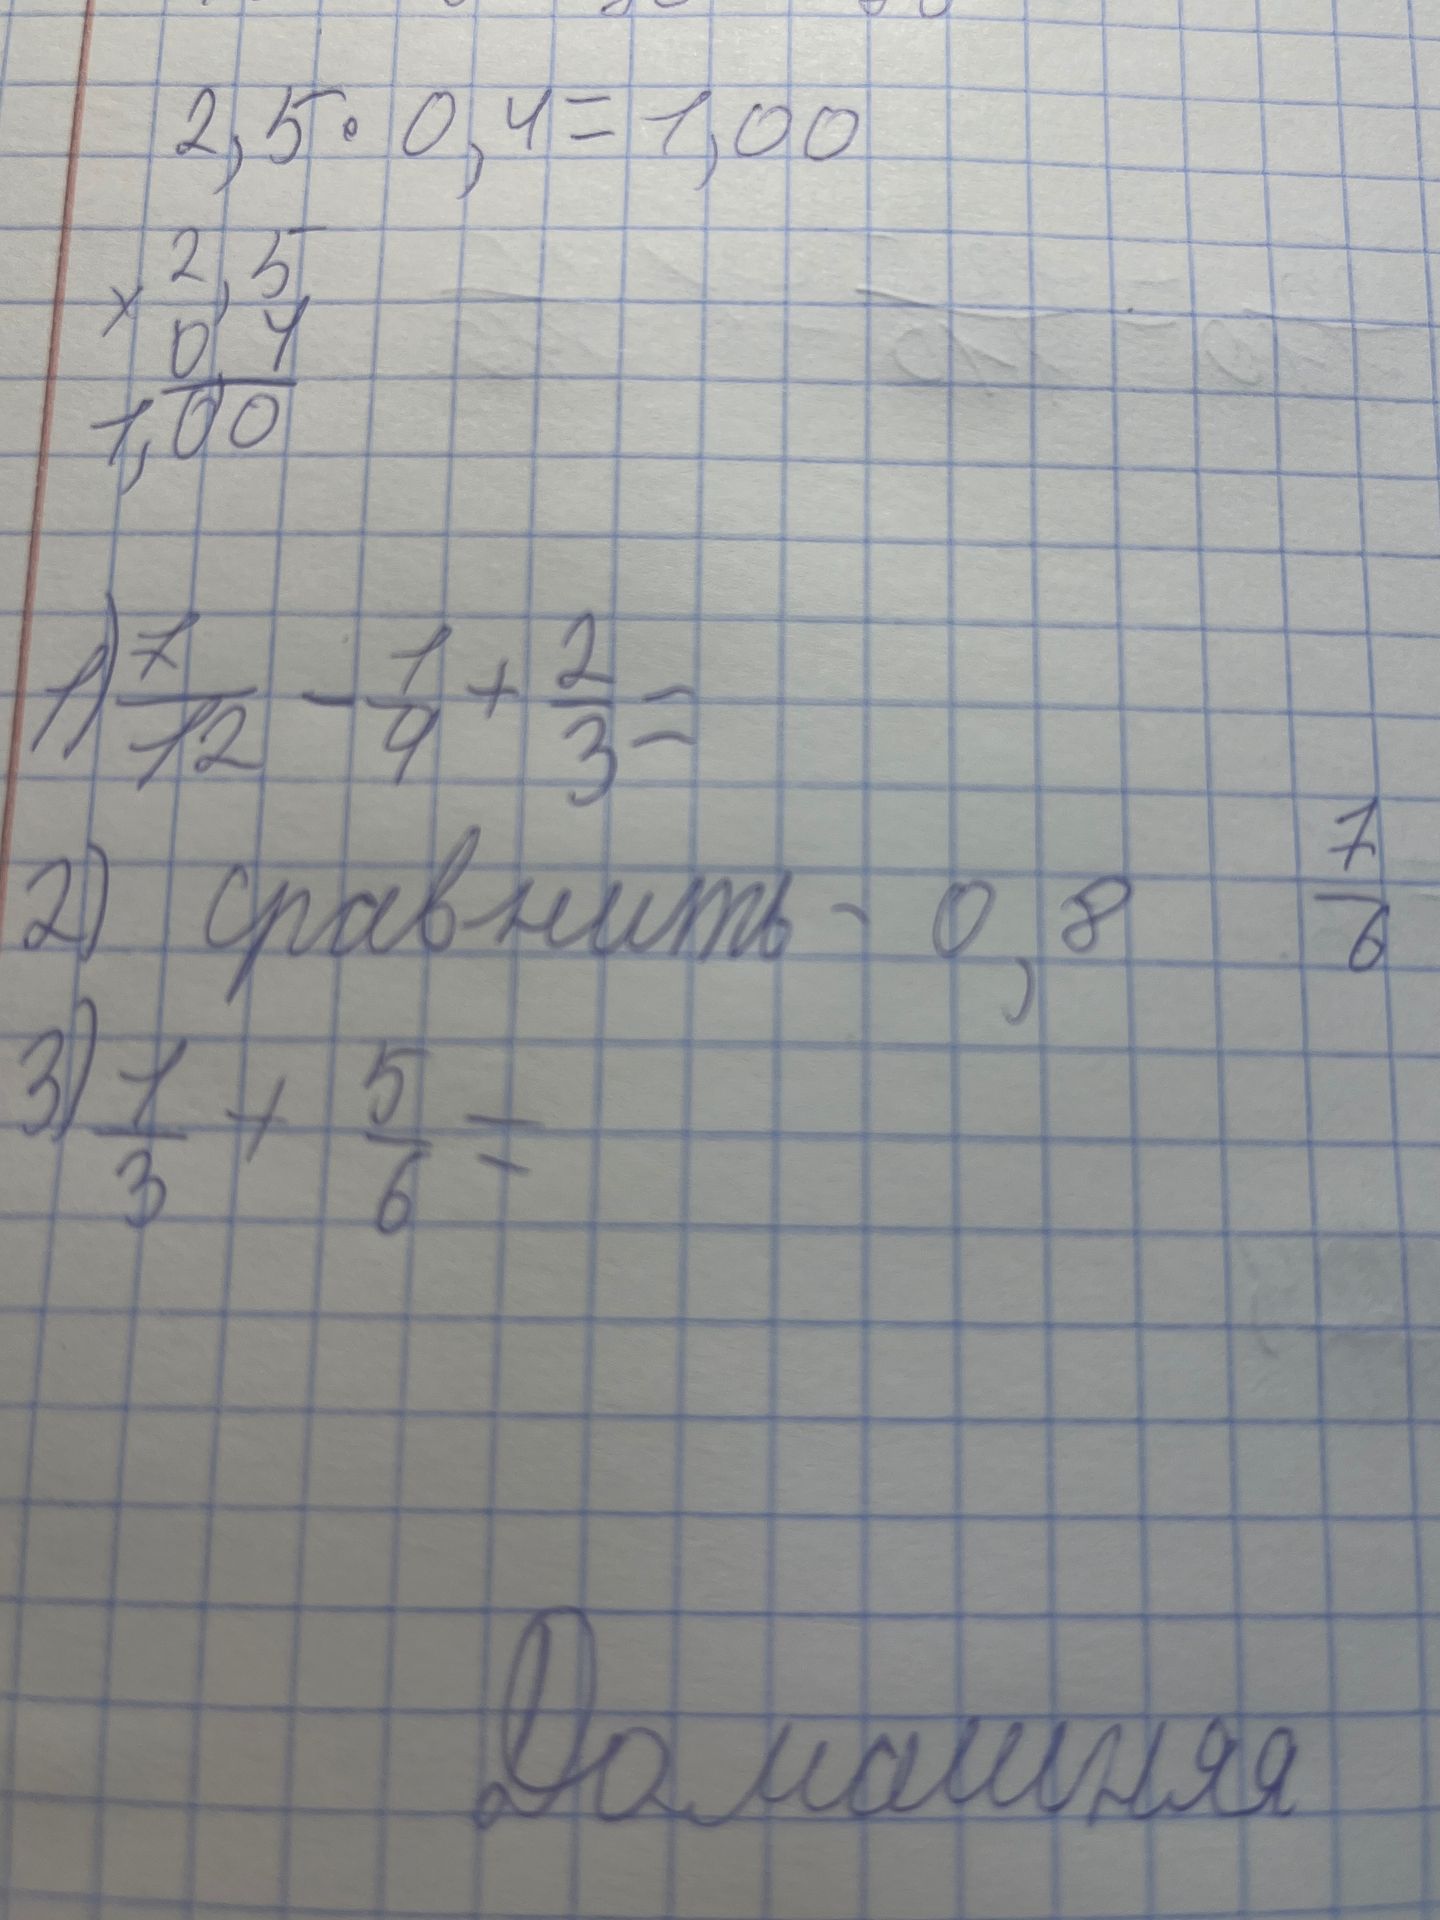 2,5 · 0,4 = 1,00
× 2,5
0,4
1,00
1) 7/12 - 1/4 + 2/3 =
2) сравнить - 0,8 7/6
3) 1/3 + 5/6 =
Домашняя